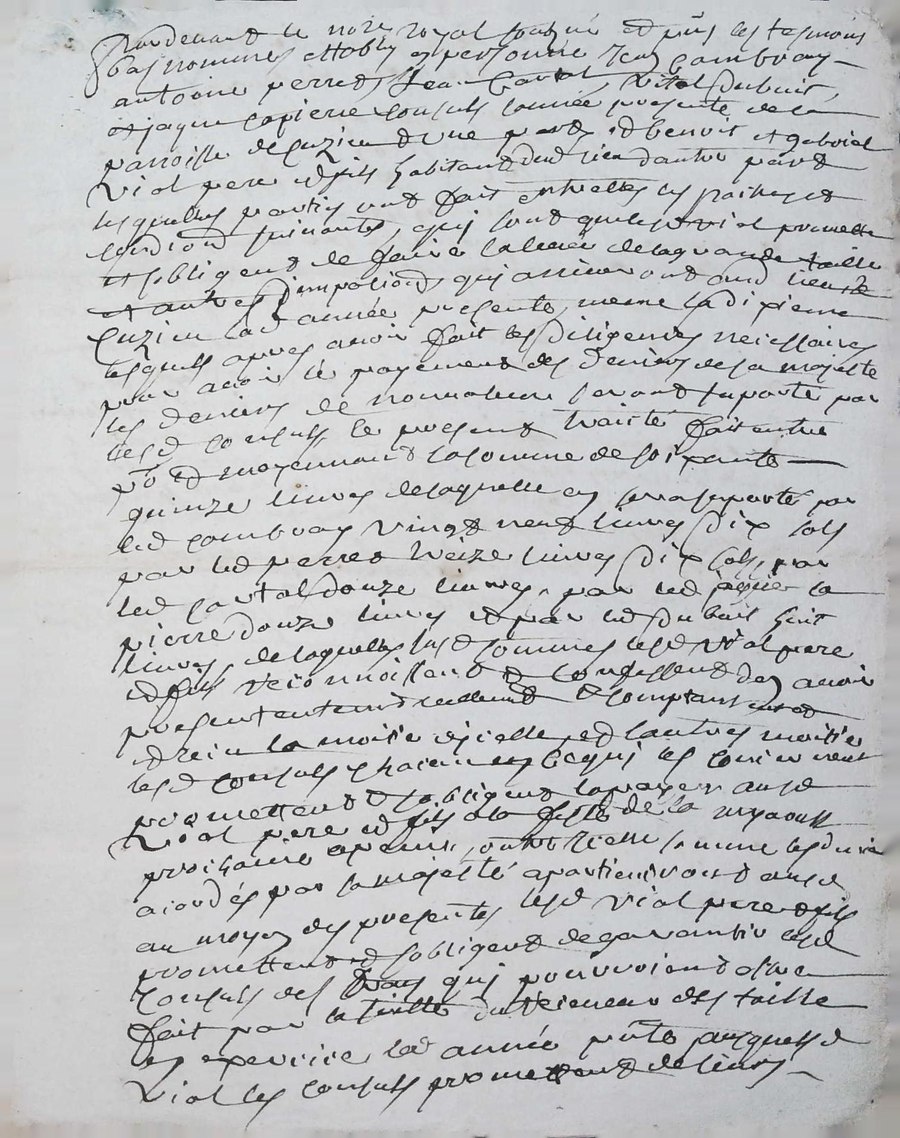 Pardevant le no.re royal soubzné et pnts les tesmoins
bas nommes estably en personne Jean Combray
antoine perret Jean Cartal, Vital Dubuit,
et jaque Lapierre Consuls lannée presente de la
parroisse de Cuzieu d'une part, et benoit et gabriel
Vial pere et fils habitant dud Cuzieu dautre part
lesquelles parties ont fait entrelles les paches et
condions suivantes, qui sont que lesd Vial promettent
et sobligent de faire la levée de la grande taille
et autres impotions qui arriveront aud lieu de
Cuzieu lad année presente, meme la dixieme
lesquels apres avoir fait les diligences necessaires
pour avoir le payement des deniers de sa majesté
les deniers de seront suporté par
lesd Consuls, le present traité fait entre
moyennant la somme de soixante
quinze livres de laquelle en sera suporté par
led Combray vingt neuf livres dix sols
par led perret treize livres dix sols, par
led Cartal douze livres, par led jaque la
pierre douze livres et par led Dubuit huit
livres, de laquelle susd somme lesd Vial pere
et fils reconnoissent et confessent den avoir
presentement reellement et comptant
et receu la moitié dicelle, et lautre moitié
lesd Consuls chacun en ce qui les concernent
promettent et sobligent la payer ausd
Vial pere et fils a la feste de la myaoust
prochaine a venir, outre icelle somme les deniers
acordés par sa majesté apartiendront ausd
au moyen des presentes lesd Vial pere et fils
promettent et sobligent de garantir lesd
Consuls des frais qui pourroient estre
fait par la faute du receveur des taille
en exercice lad année pnte ausquels d
Vial les Consuls promettent de leurs